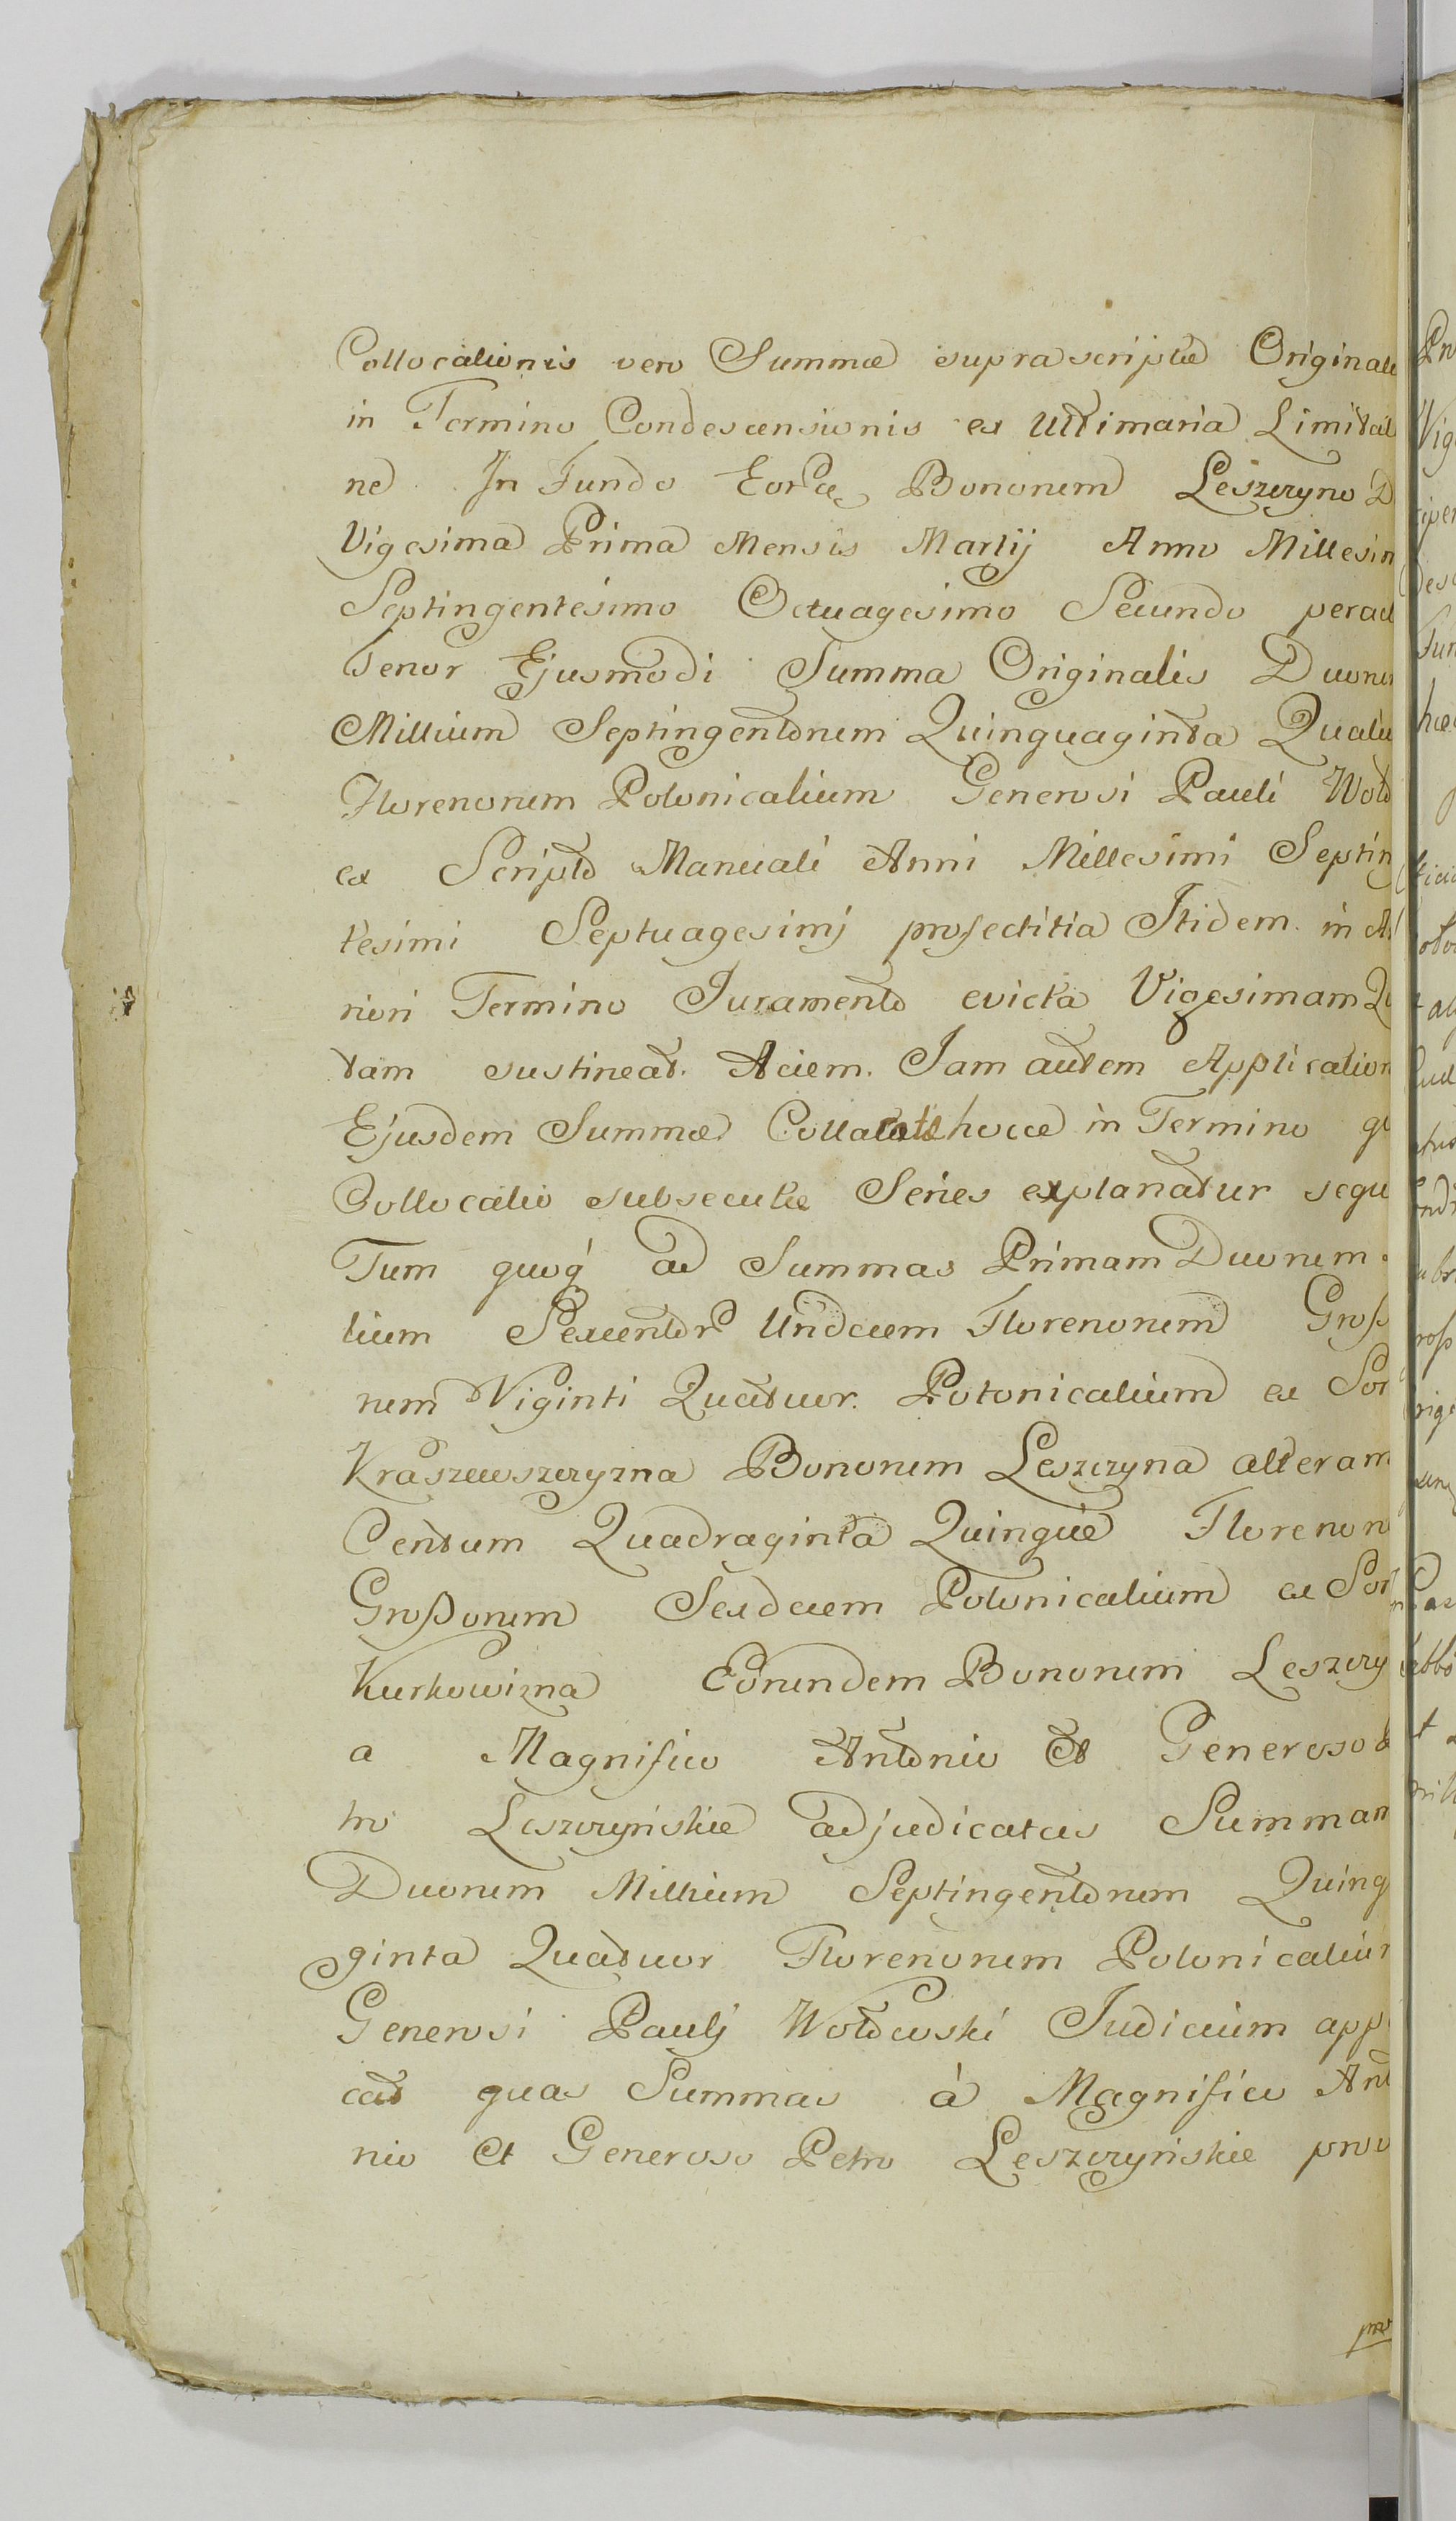 Collocationis vero Summæ suprascriptæ Originale
in Termino Condescensionis ex Ultimaria Limitat
ne In Fundo Eorcæ Bonorum Leszczyno D
Vigesima Prima Mensis Martij Anno Millesim
Septingentesimo Octuagesimo Secundo perac
Tenor Ejusmodi Summa Originalis Duorum
Millium Septingentorum Quinquaginta Quatu
Florenorum Polonicalium Generosi Pauli Woło
ex Scripto Manuali Anni Millesimi Septin
tesimi Septuagesimj profectitia Itidem in A
riori Termino Juramento evicta Vigesimam Qu
tam sustineat Aciem. Jam autem Application
Ejusdem Summæ hocce in Termino qu
Collocatio subsecutæ Series explanatur sequ
Tum quoq́ ad Summas Primam Duorum
lium Sexcentor Undecem Florenorum Groß
rum Viginti Quatuor Polonicalium ex Sor
Kraszewszczyzna Bonorum Leszczyna alteram
Centum Quadraginta Quinque Florenor
Großorum Sexdecem Polonicalium ex Sor
Kurkowizna Eorundem Bonorum Leszczy
a Magnifico Antonio Et Generoso
tro Leszczyńskie adjudicatas Summam
Duorum Millium Septingentorum Quinq
ginta Quatuor Florenorum Polonicaliu
Generosi Paulj Wołowski Judicium app
cat quas Summas à Magnifico Ant
nio Et Generoso Petro Leszczyńskie pro